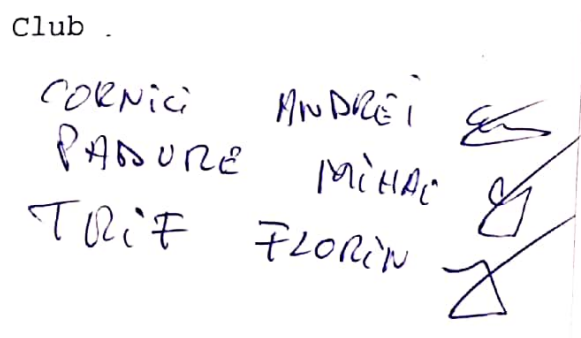 Club .
CORNiCi ANDREi
PADURE MiHAi
TRiF FLORiN